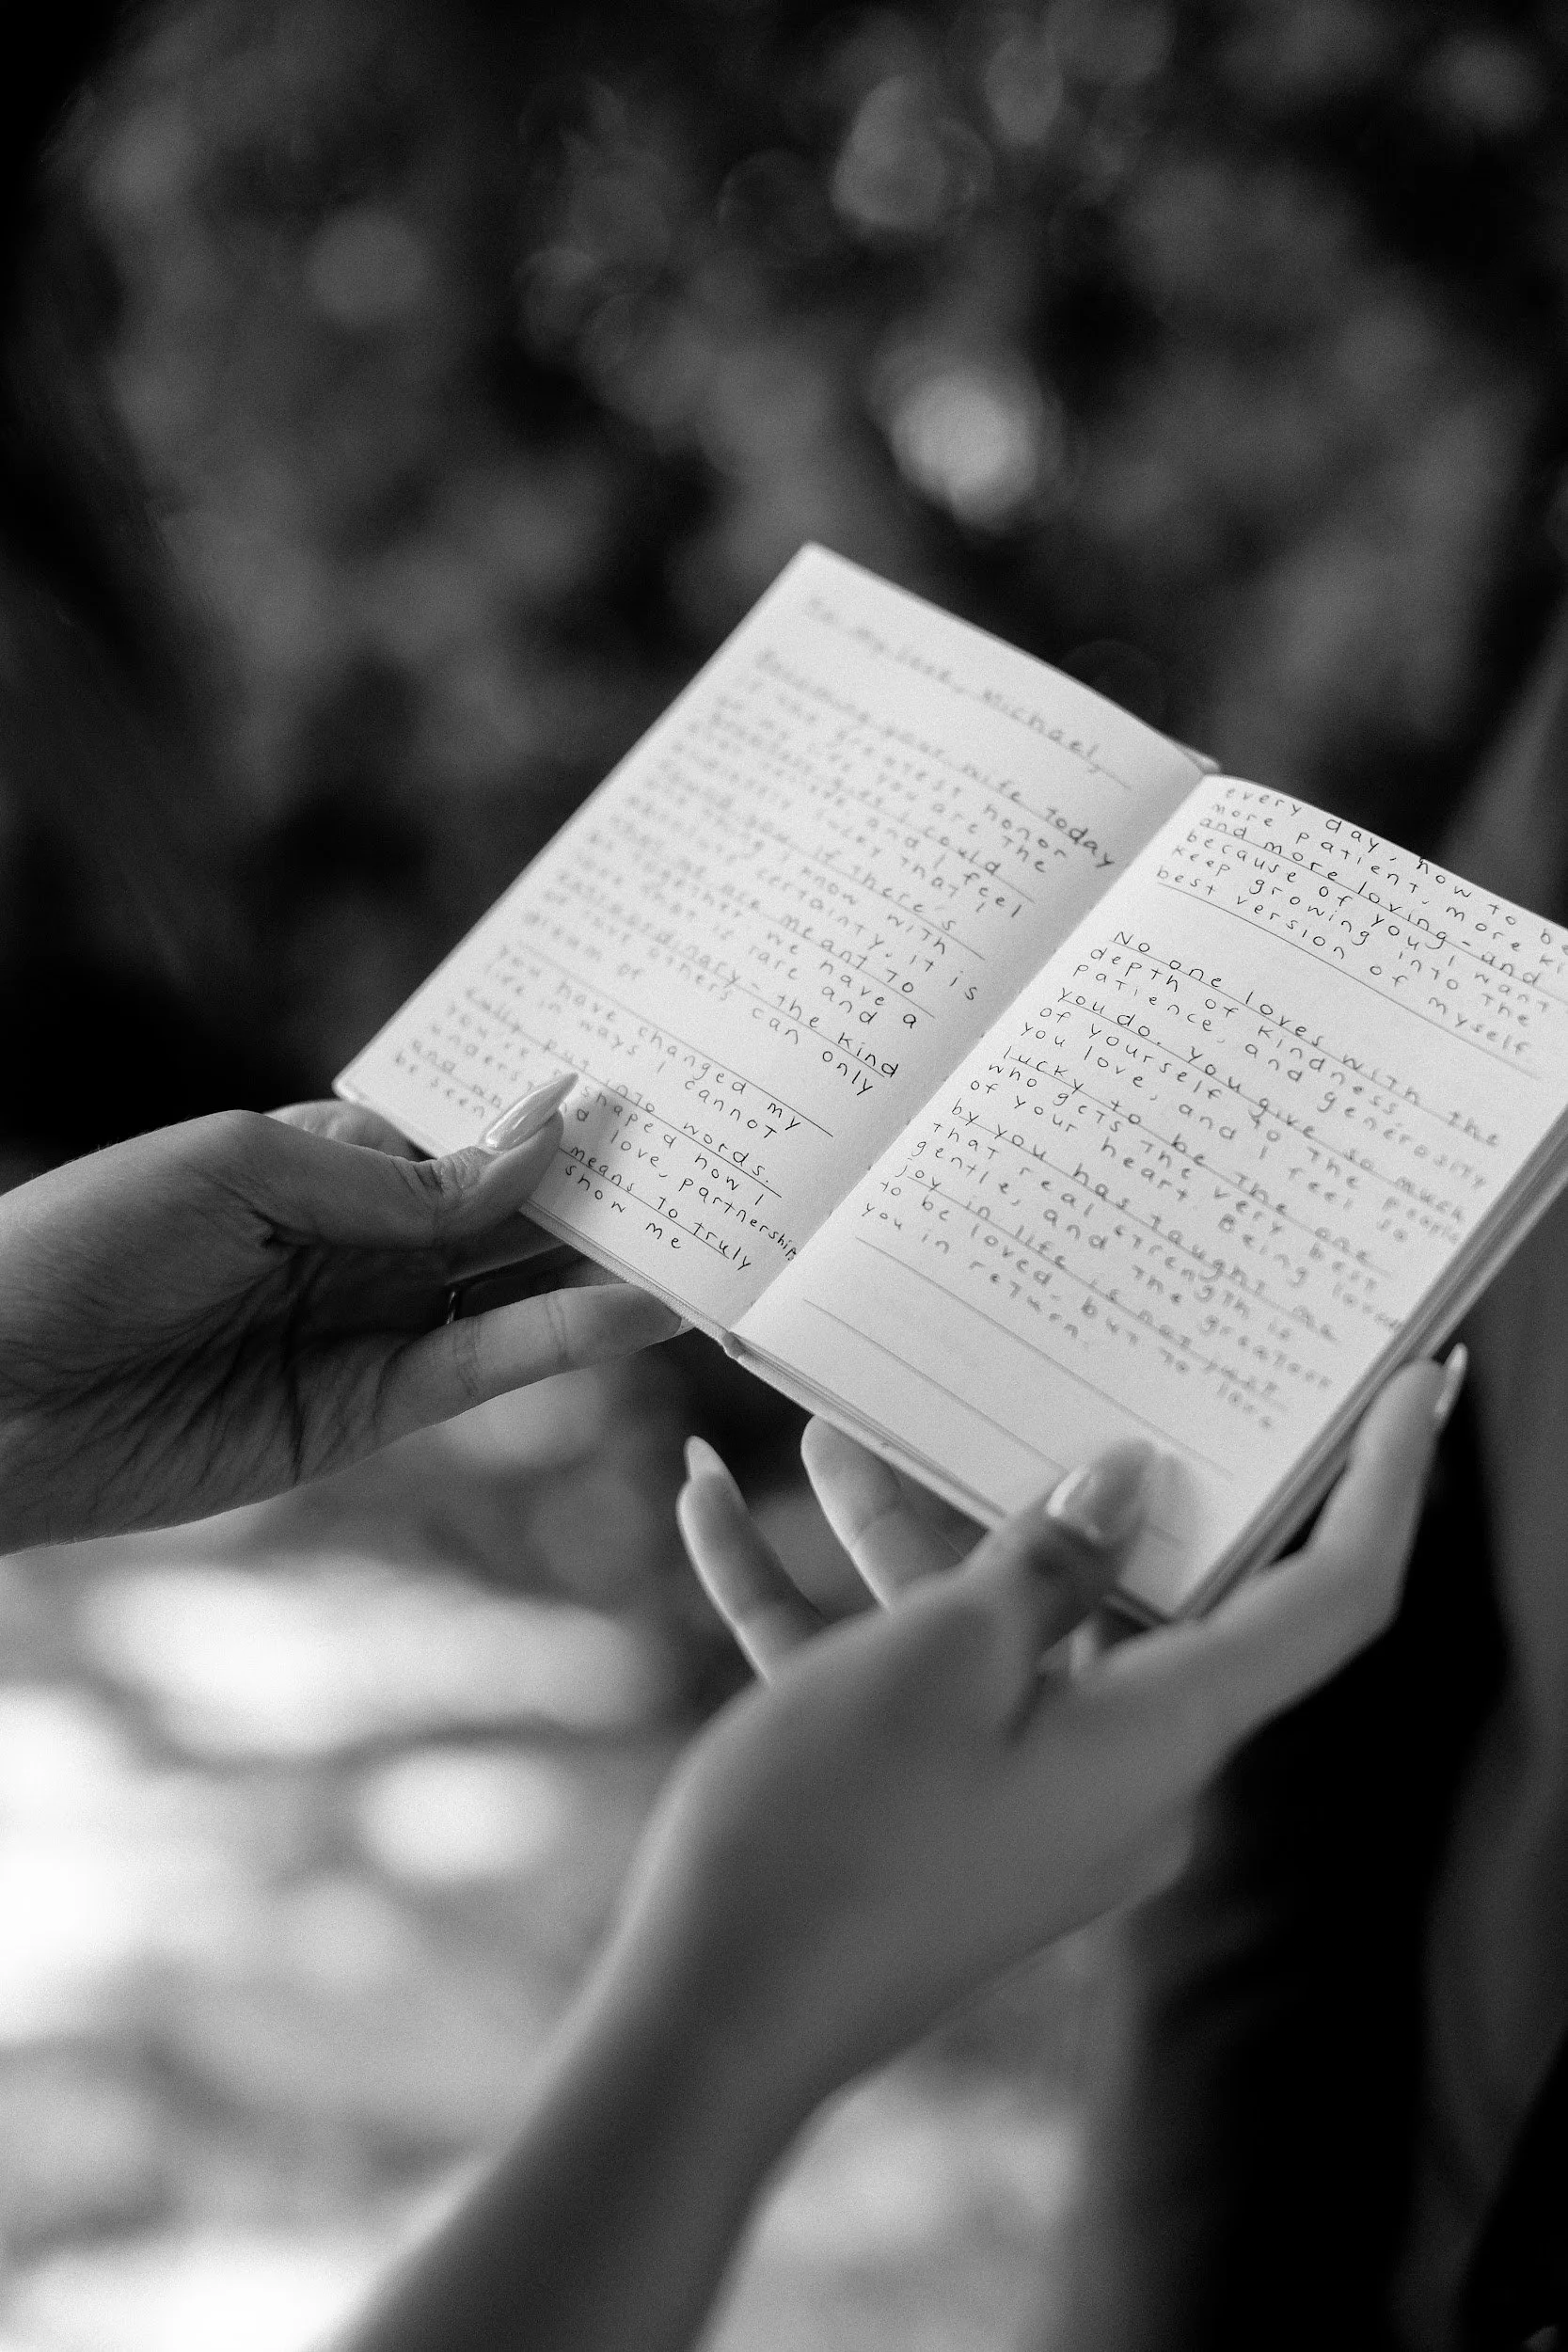 To my love, Michael,
Becoming your wife today
is the greatest honor
of my life. you are the
greatest gift I could
ever and I feel
endlessly lucky that I
found you. If there's
one thing I know with
absolute certainty, it is
that we are meant to
be together. we have a
love that is rare and
extraordinary - the kind
of love others can only
dream of.
you have changed my
life in ways I cannot
fully put into words.
you've reshaped how I
underst nd love, partnership,
and means to truly
be seen show me
every day, how to be
more patient, more ki
and more loving - and
because of you, I want
keep growing into the
best version of myself
No one loves with the
depth of kindness
patience, and generosity
you do. you give so much
of yourself to the people
you love, and I feel so
lucky to be the one
who gets the very best
of your heart. Being loved
by you has taught me
that real strength is
gentle, and the greatest
joy in life is not just
to be loved - but to love
you in return.